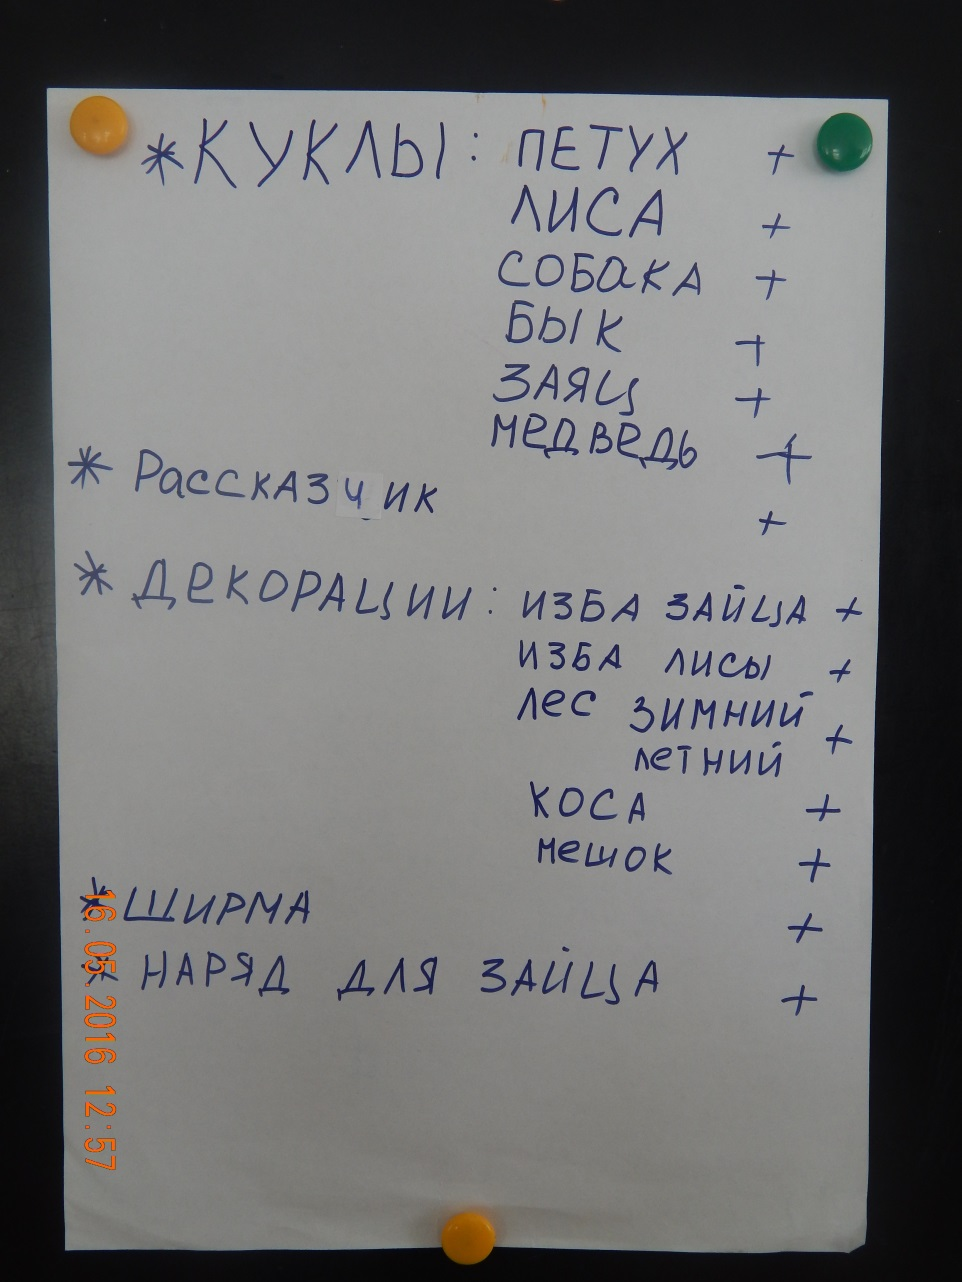 *КУКЛЫ: ПЕТУХ +
ЛИСА +
СОБаКА +
БЫК +
ЗАЯЦ +
МеДВеДЬ +
* РаССКАЗЧИК +
* ДеКОРАЦИИ: ИЗБА ЗАЙЦА +
ИЗБА ЛИСЫ +
Лес ЗИМНИЙ
ЛеТНИЙ +
КОСА +
МеШОК +
* ШИРМА +
* НАРЯД ДЛЯ ЗАЙЦА +
16.05.2016 12:57